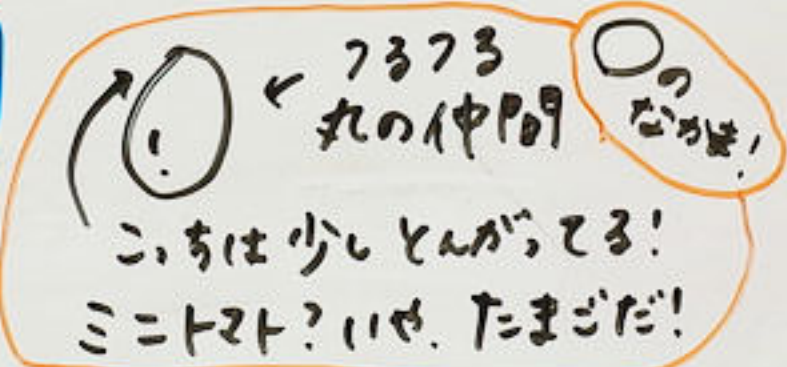 つるつる
丸の仲間
○の
なかま!
!
こっちは少しとんがってる!
ミニトマト?いや、たまごだ!